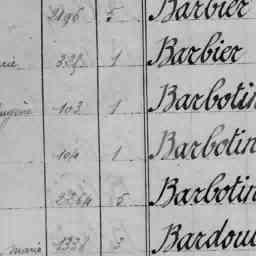 2196 5 Barbier
328 1 Barbier
103 1 Barbotin
104 1 Barbotin
2264 5 Barbotin
marie 1338 3 Bardou